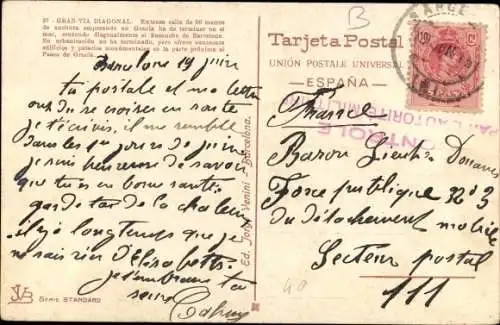 27 - GRAN VIA DIAGONAL. Extensa calle de 50 metros
de anchura empezando en Gracia ha de terminar en el
mar, cruzando diagonalmente el Ensanche de Barcelona.
Su urbanización no ha terminado, pero ofrece suntuosos
edificios y palacios monumentales en la parte próxima al
Paseo de Gracia.
B
Tarjeta Postal
UNION POSTALE UNIVERSAL
ESPAÑA
CONTROLE
PAR L'AUTORITÉ MILITAIRE
Barcelone 19 juin
ta postale et ma lettre
ont du se croiser en route
je t'écrivis, il me semble
dans les jours de juin
je suis heureuse de savoir
que tu es en bonne santé
garde toi de la chaleur
il y a longtemps que je
ne sais rien d'Elisabeth
je t'embrasse ta
France
Baron Douanes
Force publique No 3
du détachement mobile
Secteur postal
111
Ed. Jorge Venini - Barcelona.
JVB
Serie STANDARD